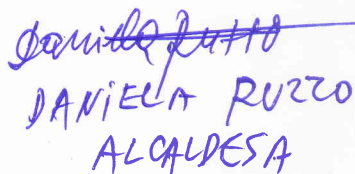 Daniela Ruzzo
DANIELA RUZZO
ALCALDESA